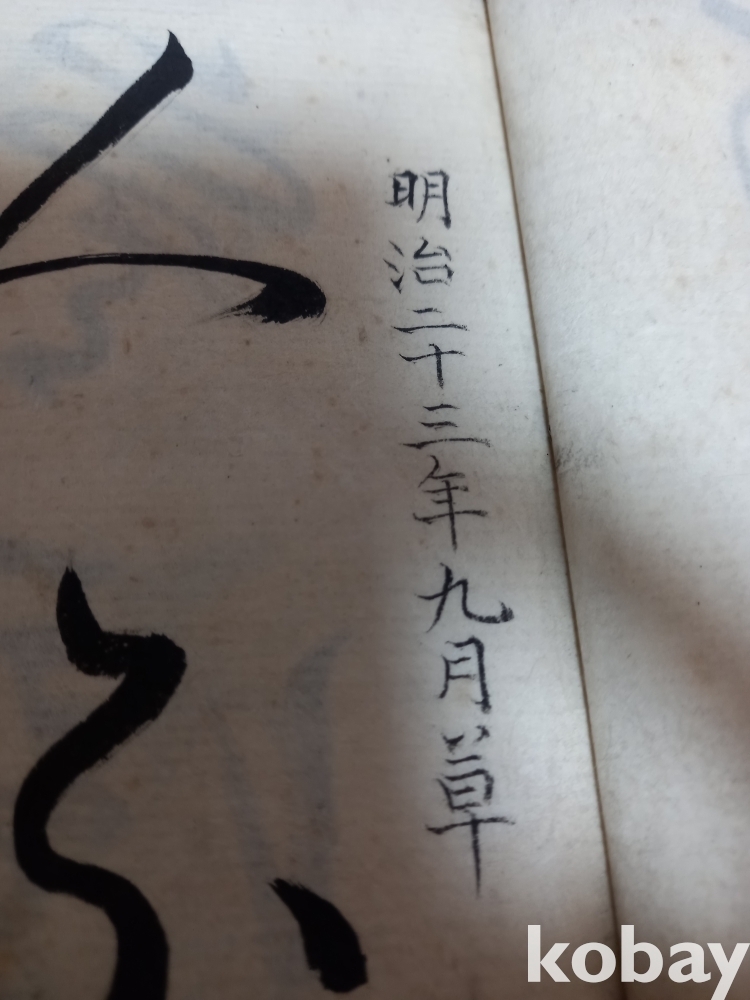 明治二十三年九月草
kobay